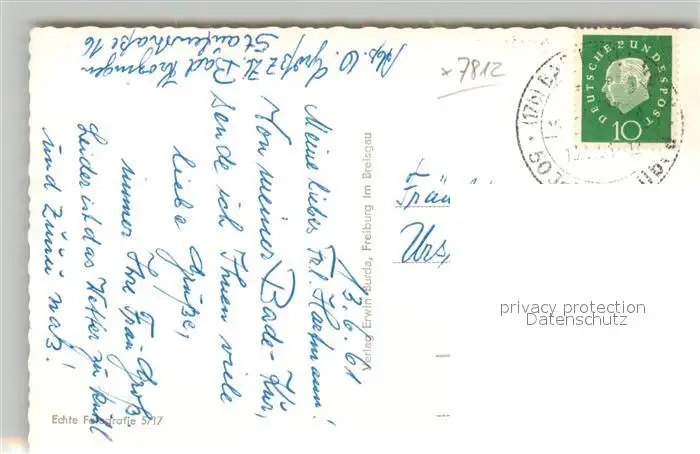 Abs. W. Groß z. Zt. Bad Krozingen
Staufenstraße 16
13.6.61
Meine liebe Frl. Hartmann!
Von meiner Bade-Kur,
sende ich Ihnen viele
liebe Grüße,
immer Ihre Frau Groß.
Leider ist das Wetter zu kühl
und zu naß!
x 7812
(17b) BAD
DEUTSCHE BUNDESPOST
10
Fräu
Urs
Verlag Erwin Burda, Freiburg im Breisgau
Echte Fotografie 5/17
privacy protection
Datenschutz